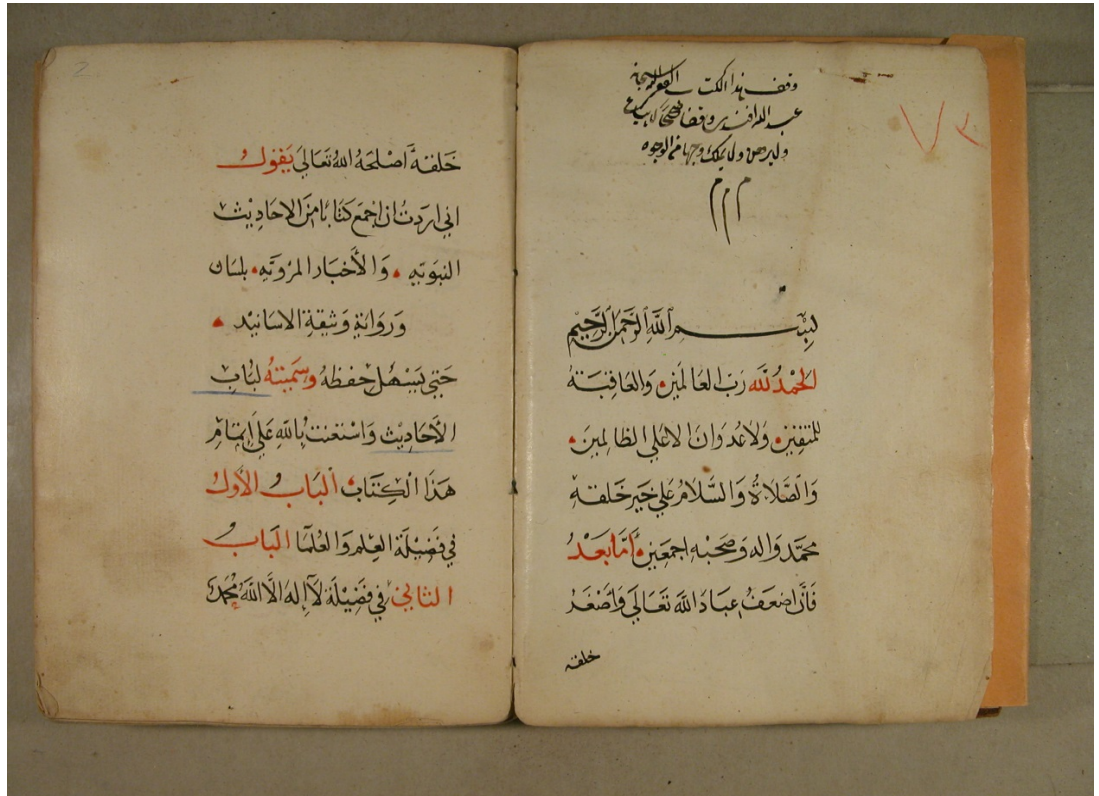 وقف هذا الكتاب
عبد الله افندي وقفا صحيحا لا يباع
ولا يرهن ولا يملك وجها من الوجوه
م م م
٧٢
بسم الله الرحمن الرحيم
الحمد لله رب العالمين والعاقبة
للمتقين ولا عدوان الا علي الظالمين
والصلاة والسلام علي خير خلقه
محمد واله وصحبه اجمعين أما بعد
فان اضعف عباد الله تعالي واصغر
خلقه
2
خلقه أصلحه الله تعالي يقول
اني اردت ان اجمع كتابا من الاحاديث
النبويه والأخبار المرويه بلسان
ورواية وثيقة الاسانيد
حتي يسهل حفظه وسميته لباب
الأحاديث واستعنت بالله علي إتمام
هذا الكتاب الباب الأول
في فضيلة العلم والعلما الباب
الثاني في فضيلة لا إله الا الله محمد